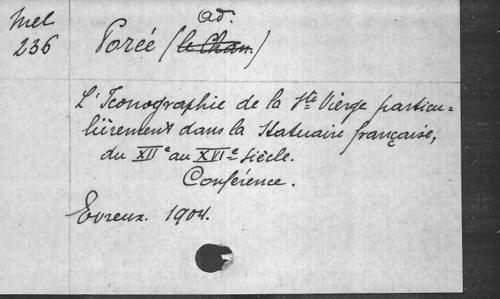 Mel
236
ad.
Porée (le Chan.)
L'Iconographie de la Ste Vierge particu=
lièrement dans la Statuaire française,
du XIIe au XVIe Siècle.
Conférence.
Evreux. 1904.